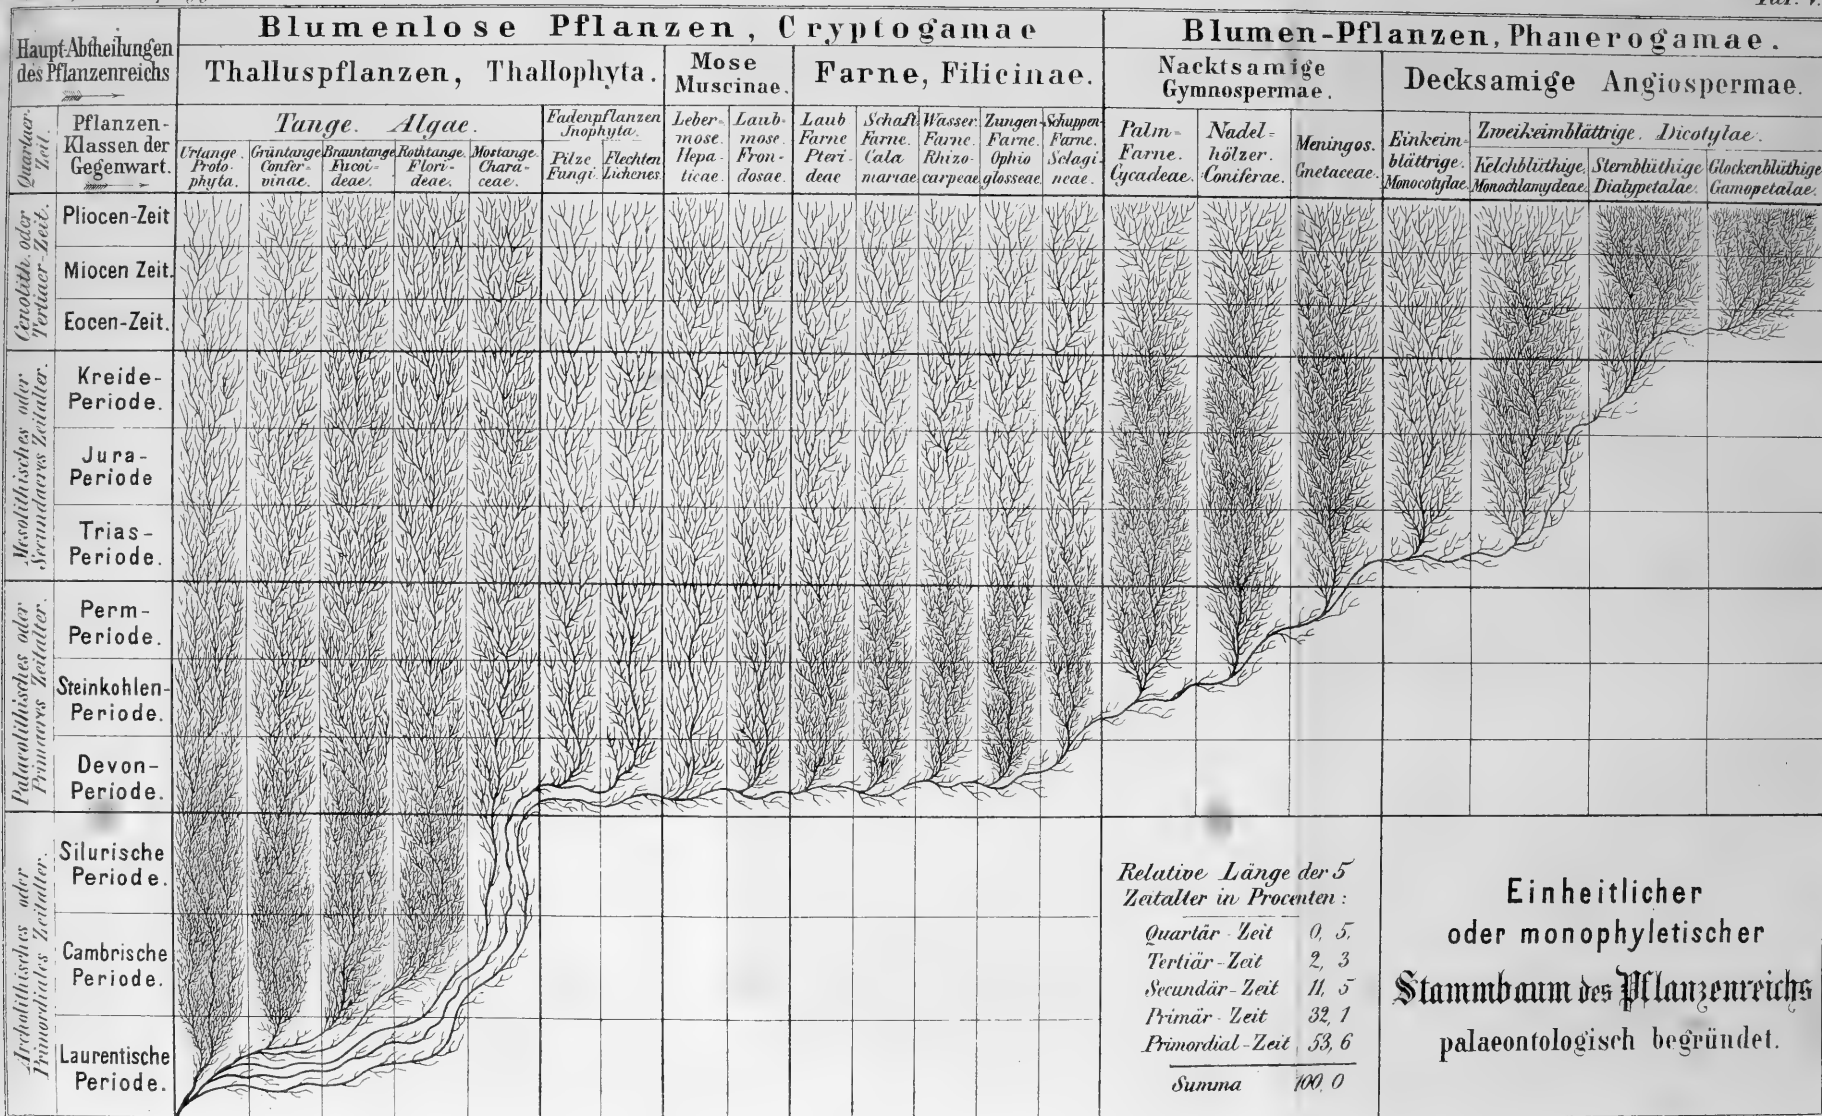 Taf. V.
Haupt-Abtheilungen
des Pflanzenreichs
Blumenlose Pflanzen, Cryptogamae
Blumen-Pflanzen, Phanerogamae.
Thalluspflanzen, Thallophyta.
Mose
Muscinae.
Farne, Filicinae.
Nacktsamige
Gymnospermae.
Decksamige Angiospermae.
Quartaer-
Zeit.
Pflanzen-
Klassen der
Gegenwart.
Tange. Algae.
Urtange.
Proto-
phyta.
Grüntange
Confer-
vinae.
Brauntange
Fucoi-
deae.
Rothtange.
Flori-
deae.
Mostange.
Chara-
ceae.
Fadenpflanzen
Inophyta.
Pilze
Fungi.
Flechten
Lichenes
Leber-
mose.
Hepa-
ticae.
Laub-
mose
Fron-
dosae.
Laub
Farne
Pteri-
deae
Schaft
Farne.
Cala
mariae
Wasser
Farne.
Rhizo-
carpeae
Zungen-
Farne.
Ophio
glosseae.
Schuppen-
Farne.
Selagi-
neae.
Palm-
Farne.
Cycadeae.
Nadel-
hölzer.
Coniferae.
Meningos.
Gnetaceae.
Einkeim-
blättrige.
Monocotylae.
Zweikeimblättrige. Dicotylae.
Kelchblüthige.
Monochlamydeae.
Sternblüthige
Dialypetalae.
Glockenblüthige
Gamopetalae.
Cenolith. oder
Tertiaer-Zeit.
Pliocen-Zeit
Miocen Zeit.
Eocen-Zeit.
Mesolithisches oder
Secundaeres Zeitalter.
Kreide-
Periode.
Jura-
Periode
Trias-
Periode.
Palaeolithisches oder
Primaeres Zeitalter.
Perm-
Periode.
Steinkohlen-
Periode.
Devon-
Periode.
Archolithisches oder
Primordiales Zeitalter.
Silurische
Periode.
Cambrische
Periode.
Laurentische
Periode.
Relative Länge der 5
Zeitalter in Procenten:
Quartär-Zeit 0, 5.
Tertiär-Zeit 2, 3
Secundär-Zeit 11, 5
Primär-Zeit 32, 1
Primordial-Zeit 53, 6
Summa 100, 0
Einheitlicher
oder monophyletischer
Stammbaum des Pflanzenreichs
palaeontologisch begründet.